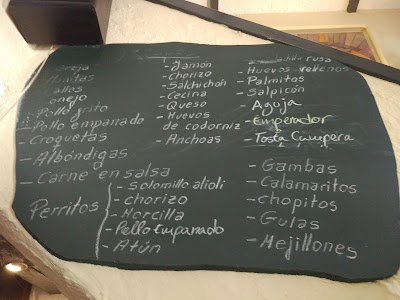 Oreja
allos
onejo
- Pollo frito
- Pollo empanado
- Croquetas
- Albóndigas
- Carne en salsa
Perritos
- Solomillo alioli
- chorizo
- Morcilla
- Pollo Empanado
- Atún
- Jamón
- Chorizo
- Salchichón
- Cecina
- Queso
- Huevos
de codorniz
- Anchoas
rusa
- Huevos rellenos
- Palmitos
- Salpicón
- Aguja
- Emperador
- Tosta Campera
- Gambas
- Calamaritos
- chopitos
- Gulas
- Mejillones